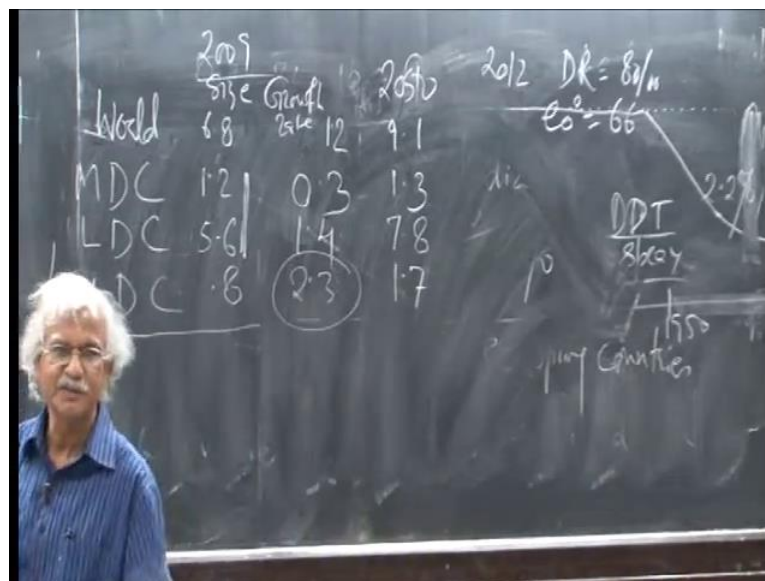 2009
Size Growth Rate 2050
World 68 12 9.1
MDC 1.2 0.3 1.3
LDC 5.6 1.4 78
DC .8 2.3 1.7
2012 DR = 8%
e0 = 66
2.2%
DDT
Spray
1950
Countries